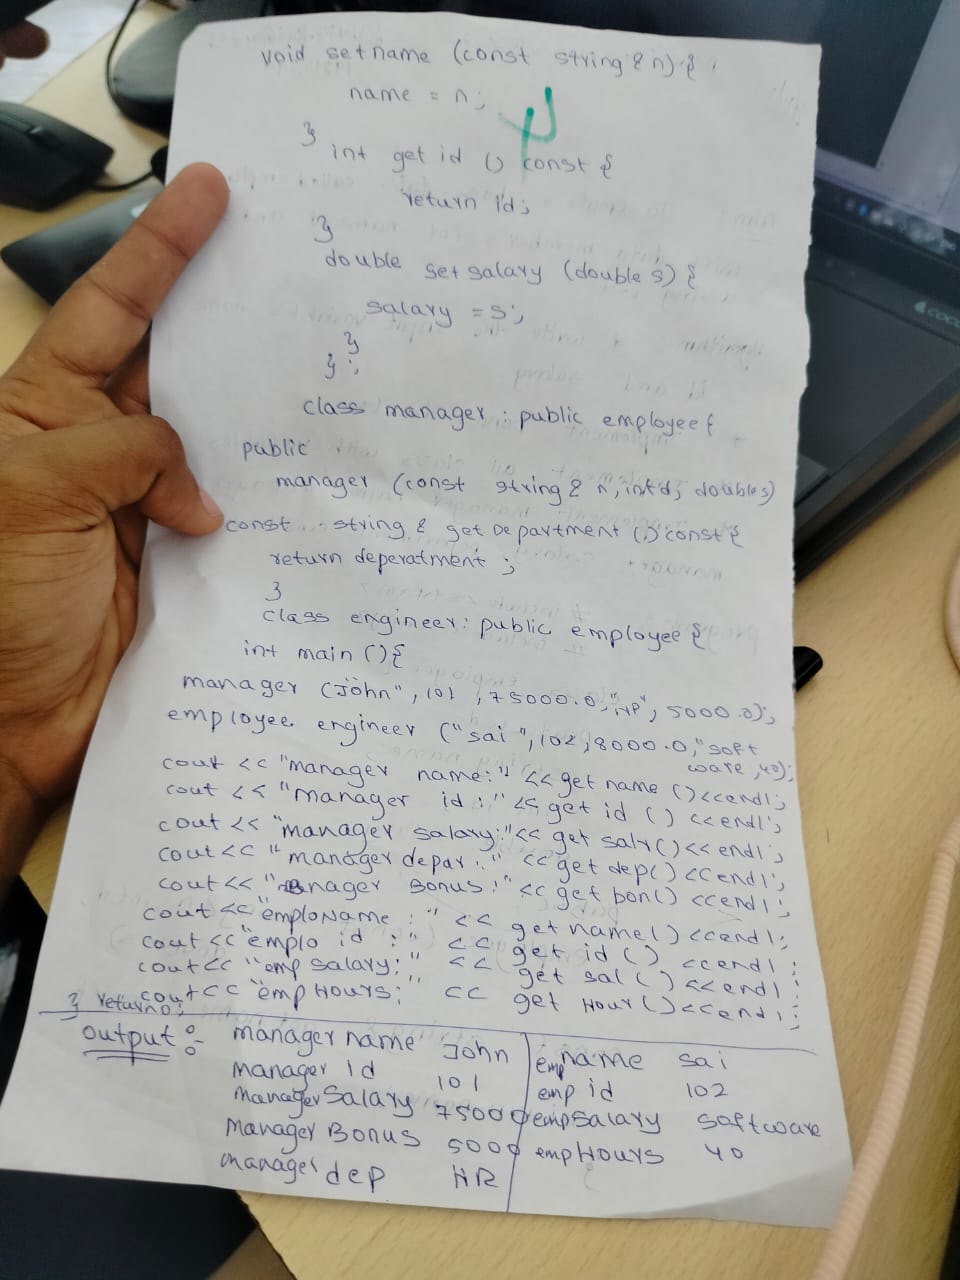 void setname (const string & n) {
name = n;
}
int get id () const {
return id;
}
double set salary (double s) {
salary = s;
}
};
class manager : public employee {
public
manager (const string & n, int d, double s)
const string & get Department () const {
return deperatment ;
}
class engineer : public employee {
int main () {
manager (John", 101 , 75000.0, "HP", 5000.0);
employee engineer ("sai", 102, 8000.0, "soft
ware, 40);
cout << "manager name:" << get name () << endl;
cout << "manager id :" << get id () << endl;
cout << "manager salary:" << get salr() << endl;
cout << "manager depar :" << get dep() << endl;
cout << "manager Bonus :" << get bon() << endl;
cout << "emploName : " << get name() << endl;
cout << "emplo id : " << get id () << endl;
cout << "emp salary: " << get sal () << endl;
cout << "emp Hours: << get Hour () << endl;
} return 0;
output :-
manager name John
Manager id 101
Manager Salary 75000
Manager Bonus 5000
manager dep HR
emp name sai
emp id 102
emp salary software
emp Hours 40